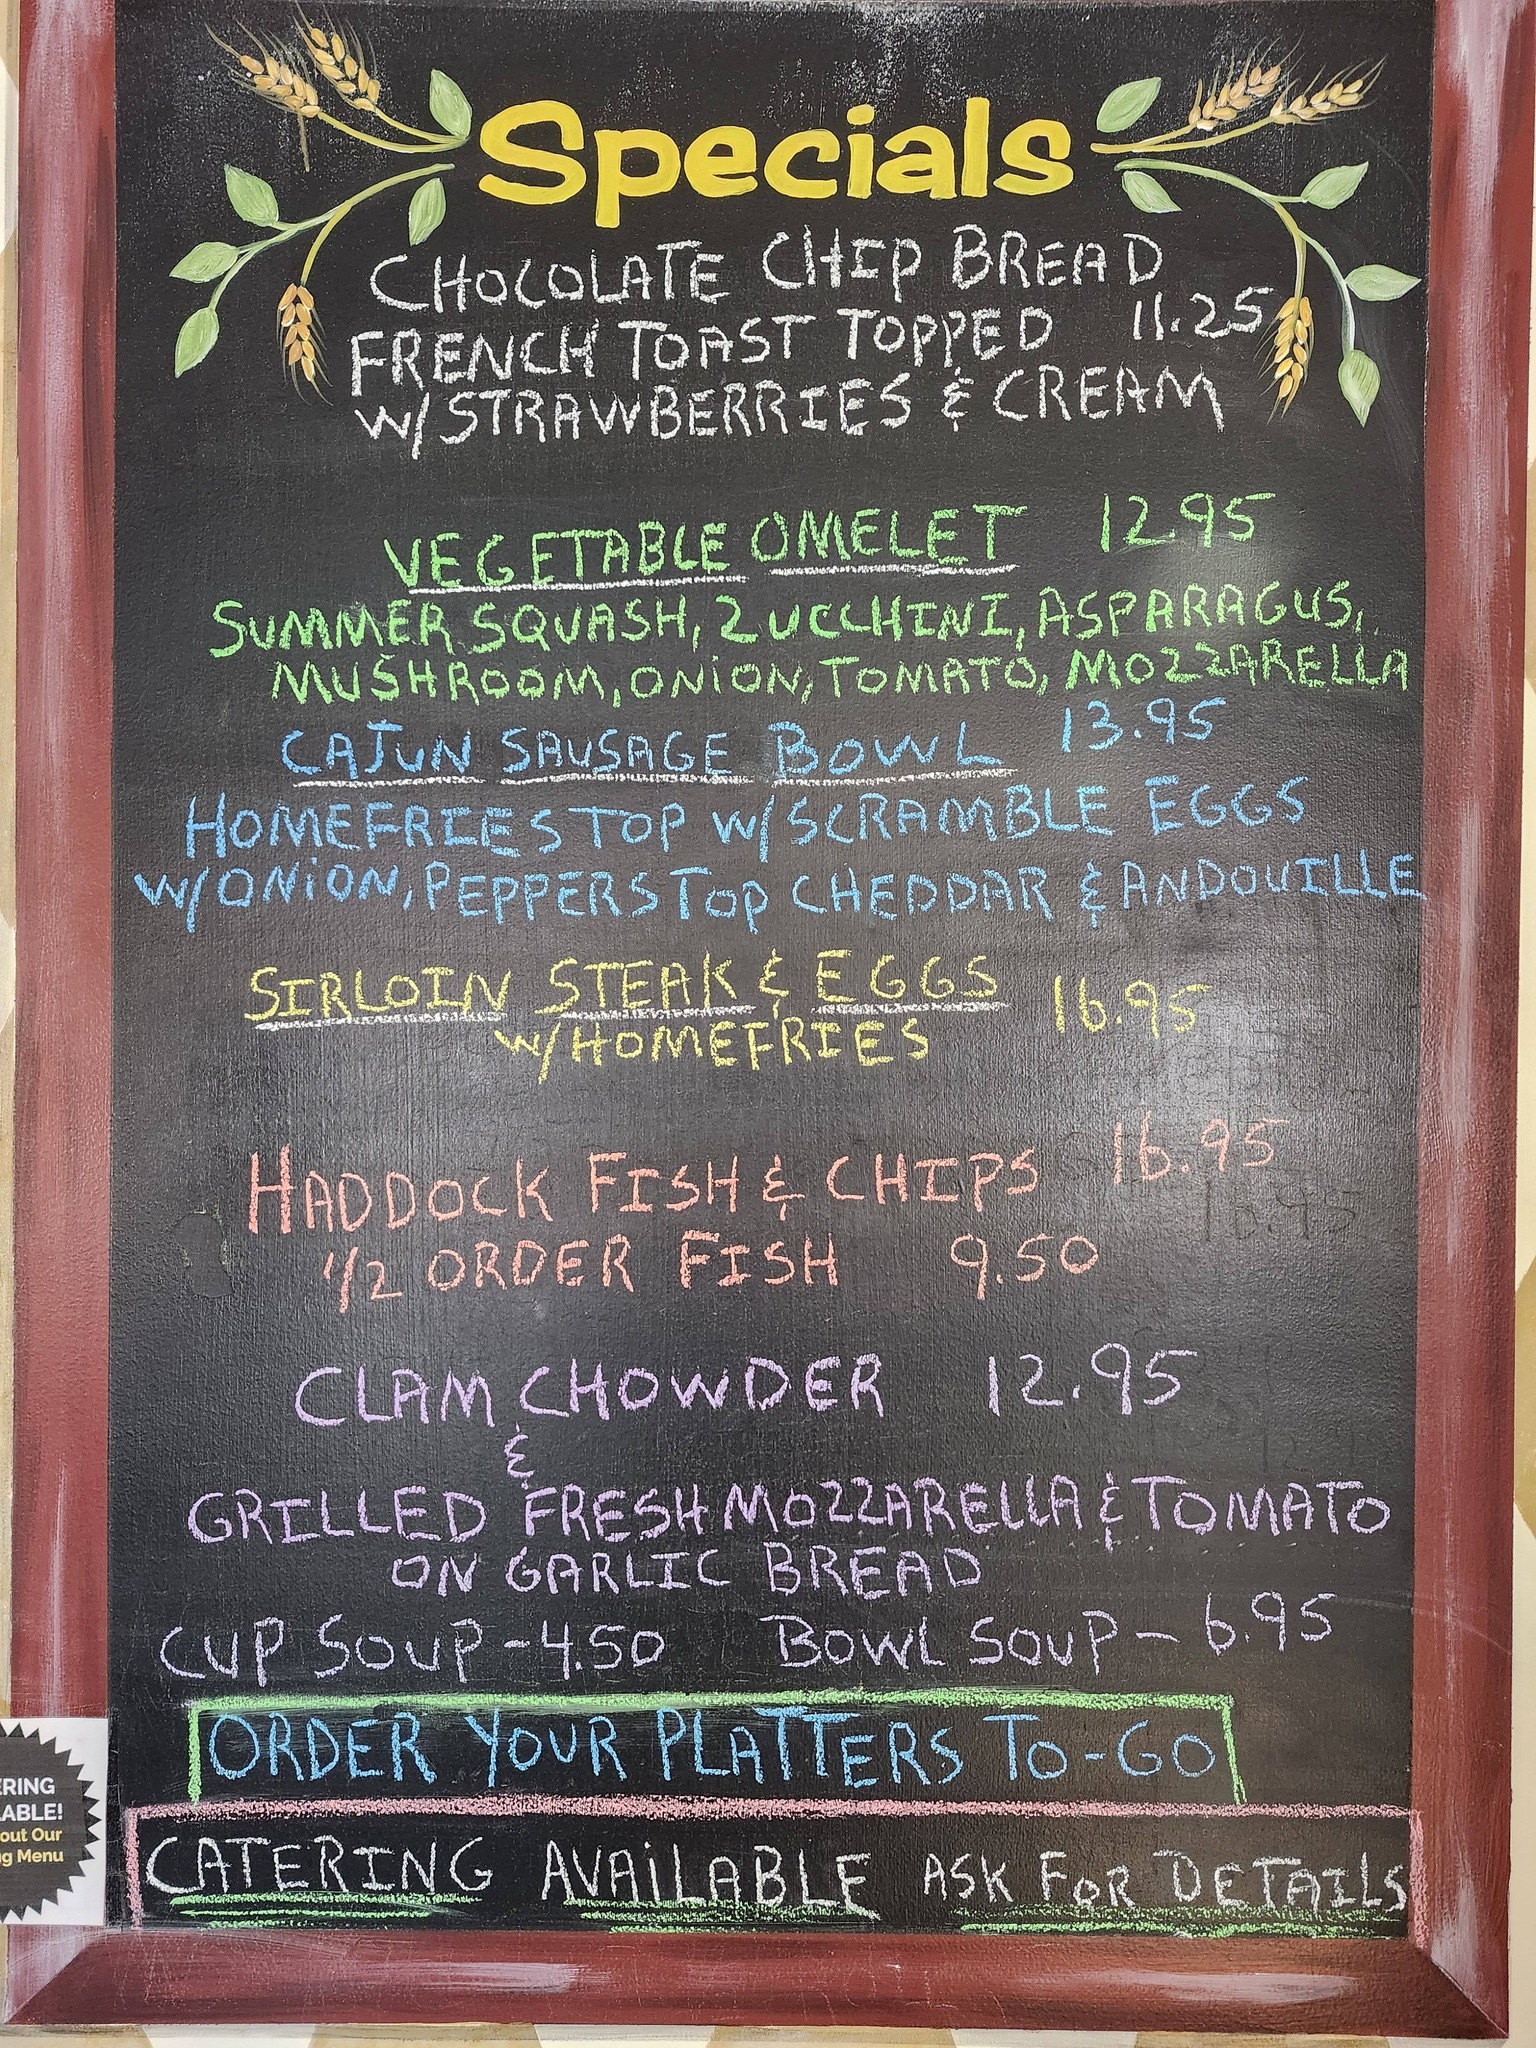 Specials
CHOCOLATE CHIP BREAD
FRENCH TOAST TOPPED 11.25
W/STRAWBERRIES & CREAM
VEGETABLE OMELET 12.95
SUMMER SQUASH, ZUCCHINI, ASPARAGUS,
MUSHROOM, ONION, TOMATO, MOZZARELLA
CAJUN SAUSAGE BOWL 13.95
HOMEFRIES TOP W/SCRAMBLE EGGS
W/ONION, PEPPERS TOP CHEDDAR & ANDOUILLE
SIRLOIN STEAK & EGGS 16.95
W/HOMEFRIES
HADDOCK FISH & CHIPS 16.95
1/2 ORDER FISH 9.50
CLAM CHOWDER 12.95
&
GRILLED FRESH MOZZARELLA & TOMATO
ON GARLIC BREAD
CUP SOUP - 4.50 BOWL SOUP - 6.95
ORDER YOUR PLATTERS TO-GO
CATERING AVAILABLE ASK FOR DETAILS
ERING
ABLE!
out Our
g Menu